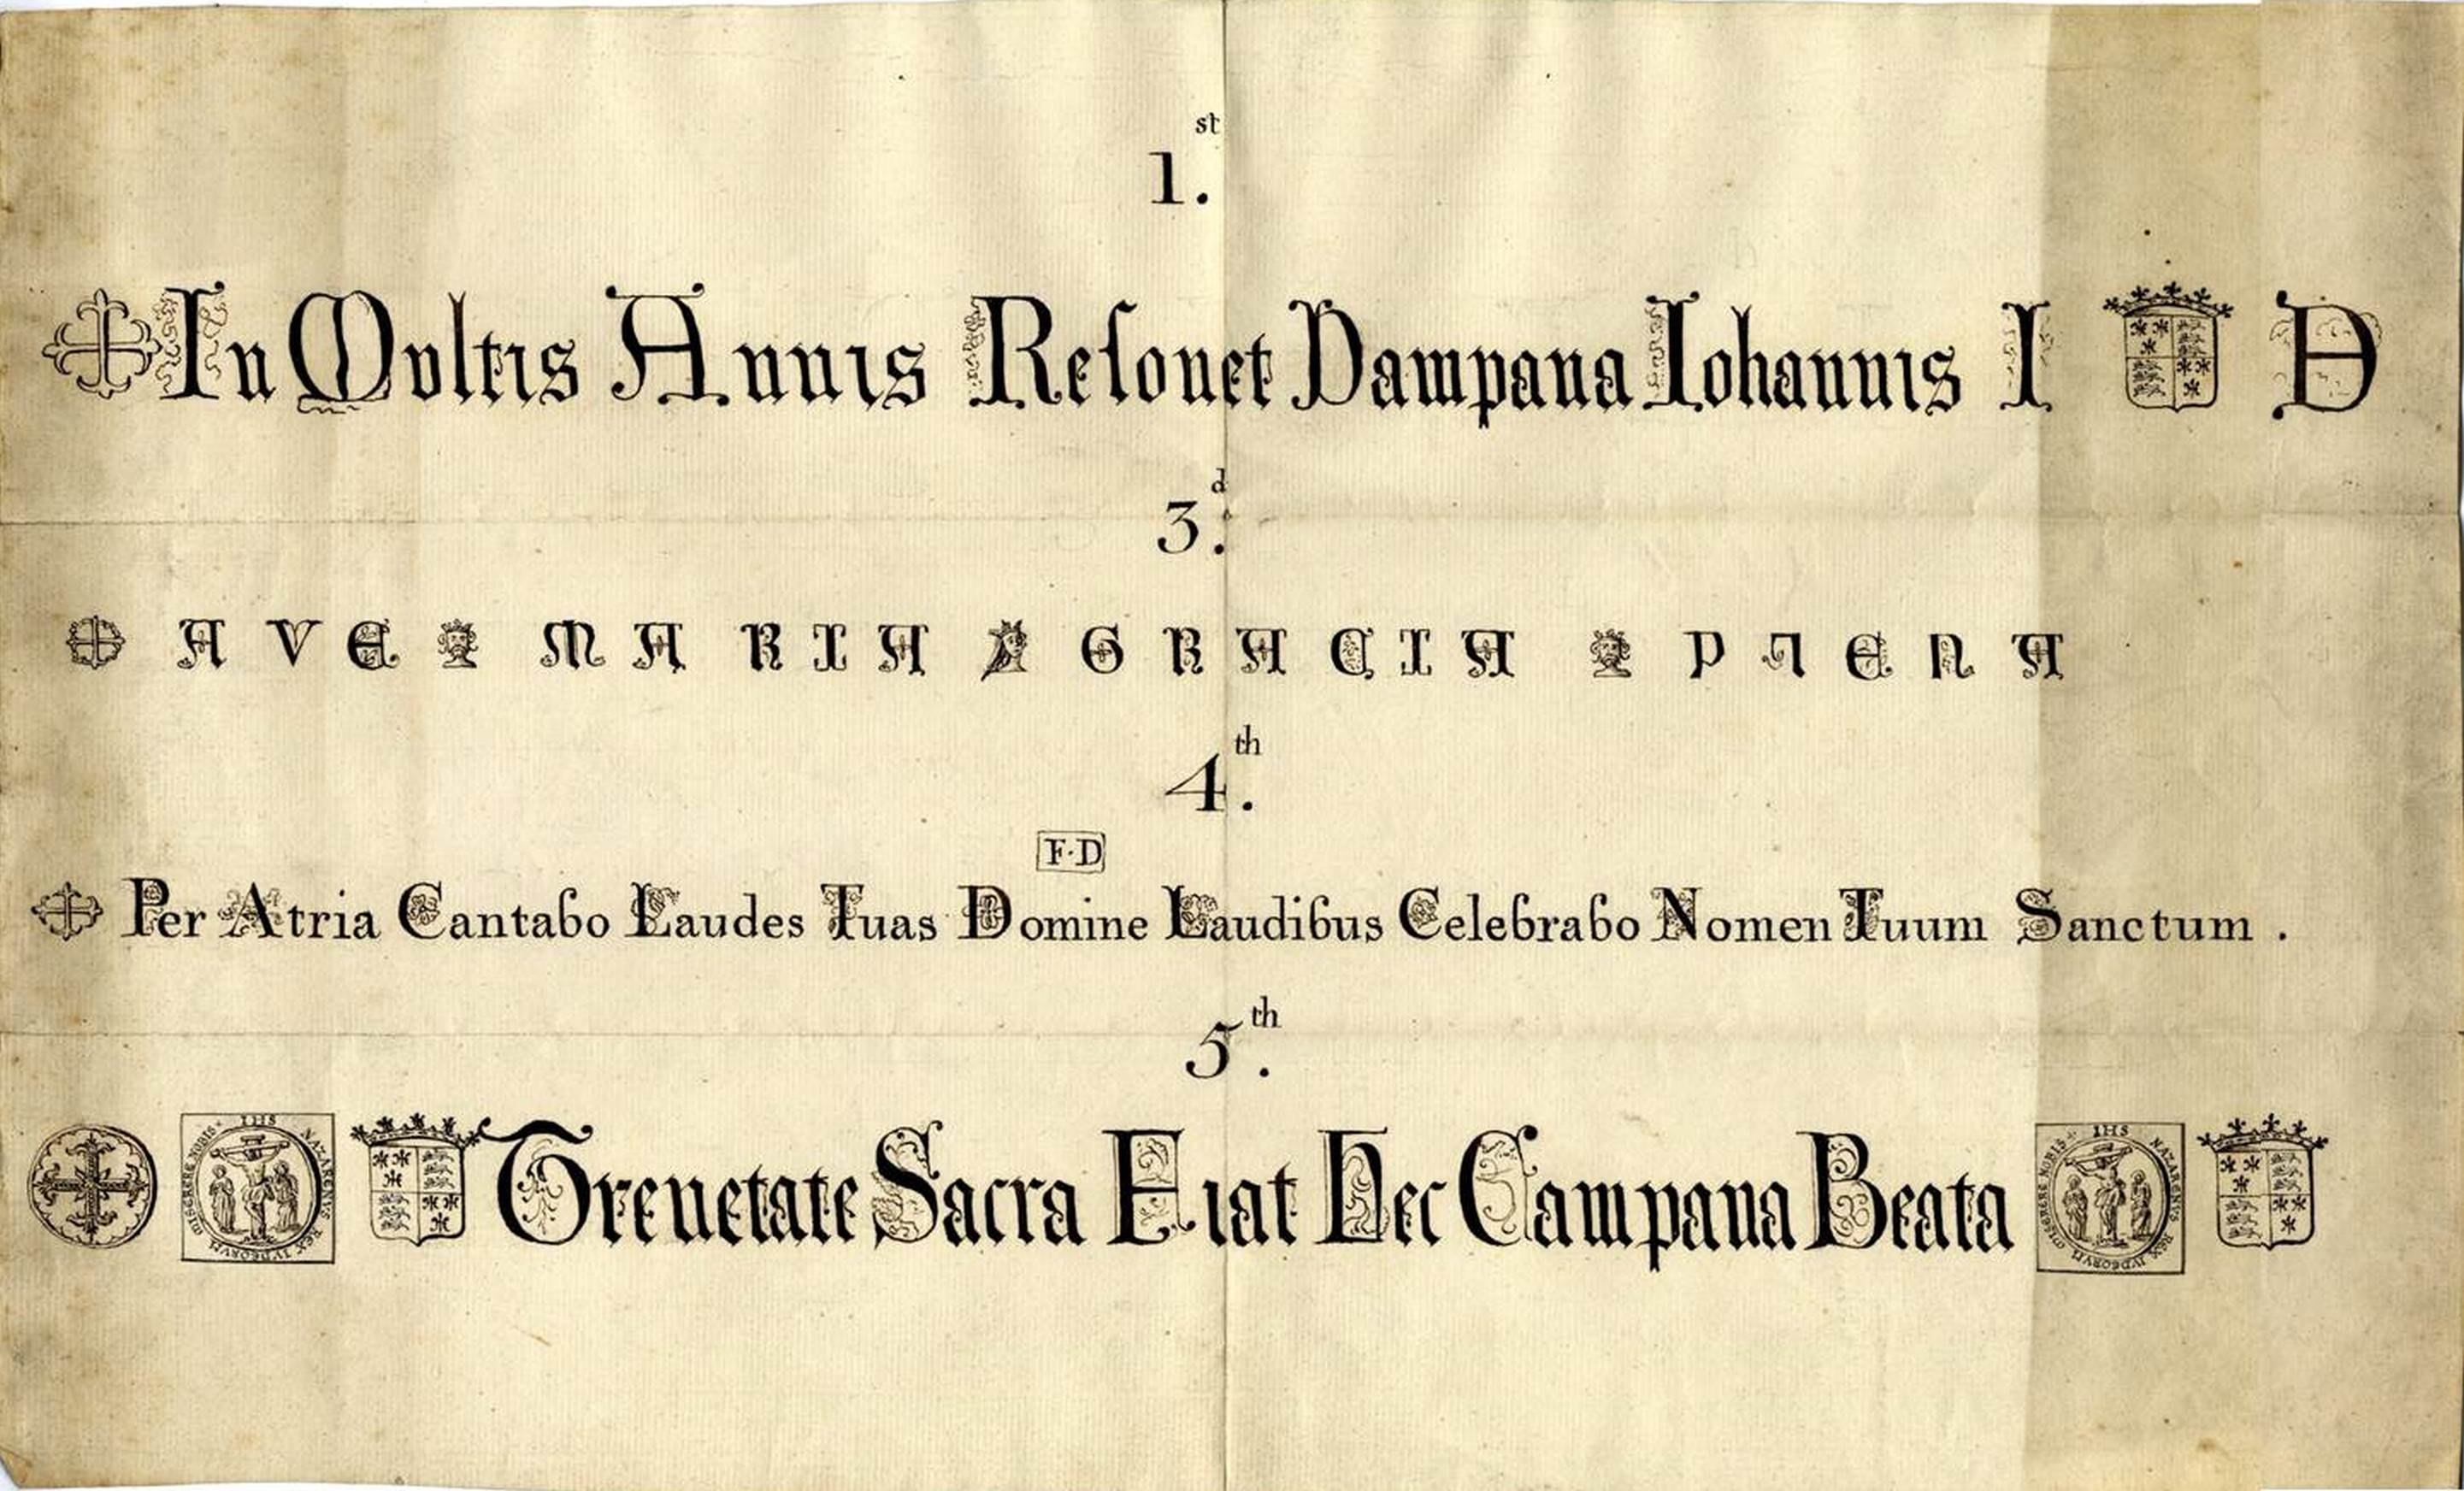 1.st
In Multis Annis Resonet Campana Iohannis I D
3.d
AVE MARIA GRACIA PLENA
4.th
F·D
Per Atria Cantabo Laudes Tuas Domine Laudibus Celebrabo Nomen Tuum Sanctum .
5.th
IHS NAZARENVS REX IVDEORVM MISERERE NOBIS Trenetate Sacra Fiat Hec Campana Beata IHS NAZARENVS REX IVDEORVM MISERERE NOBIS